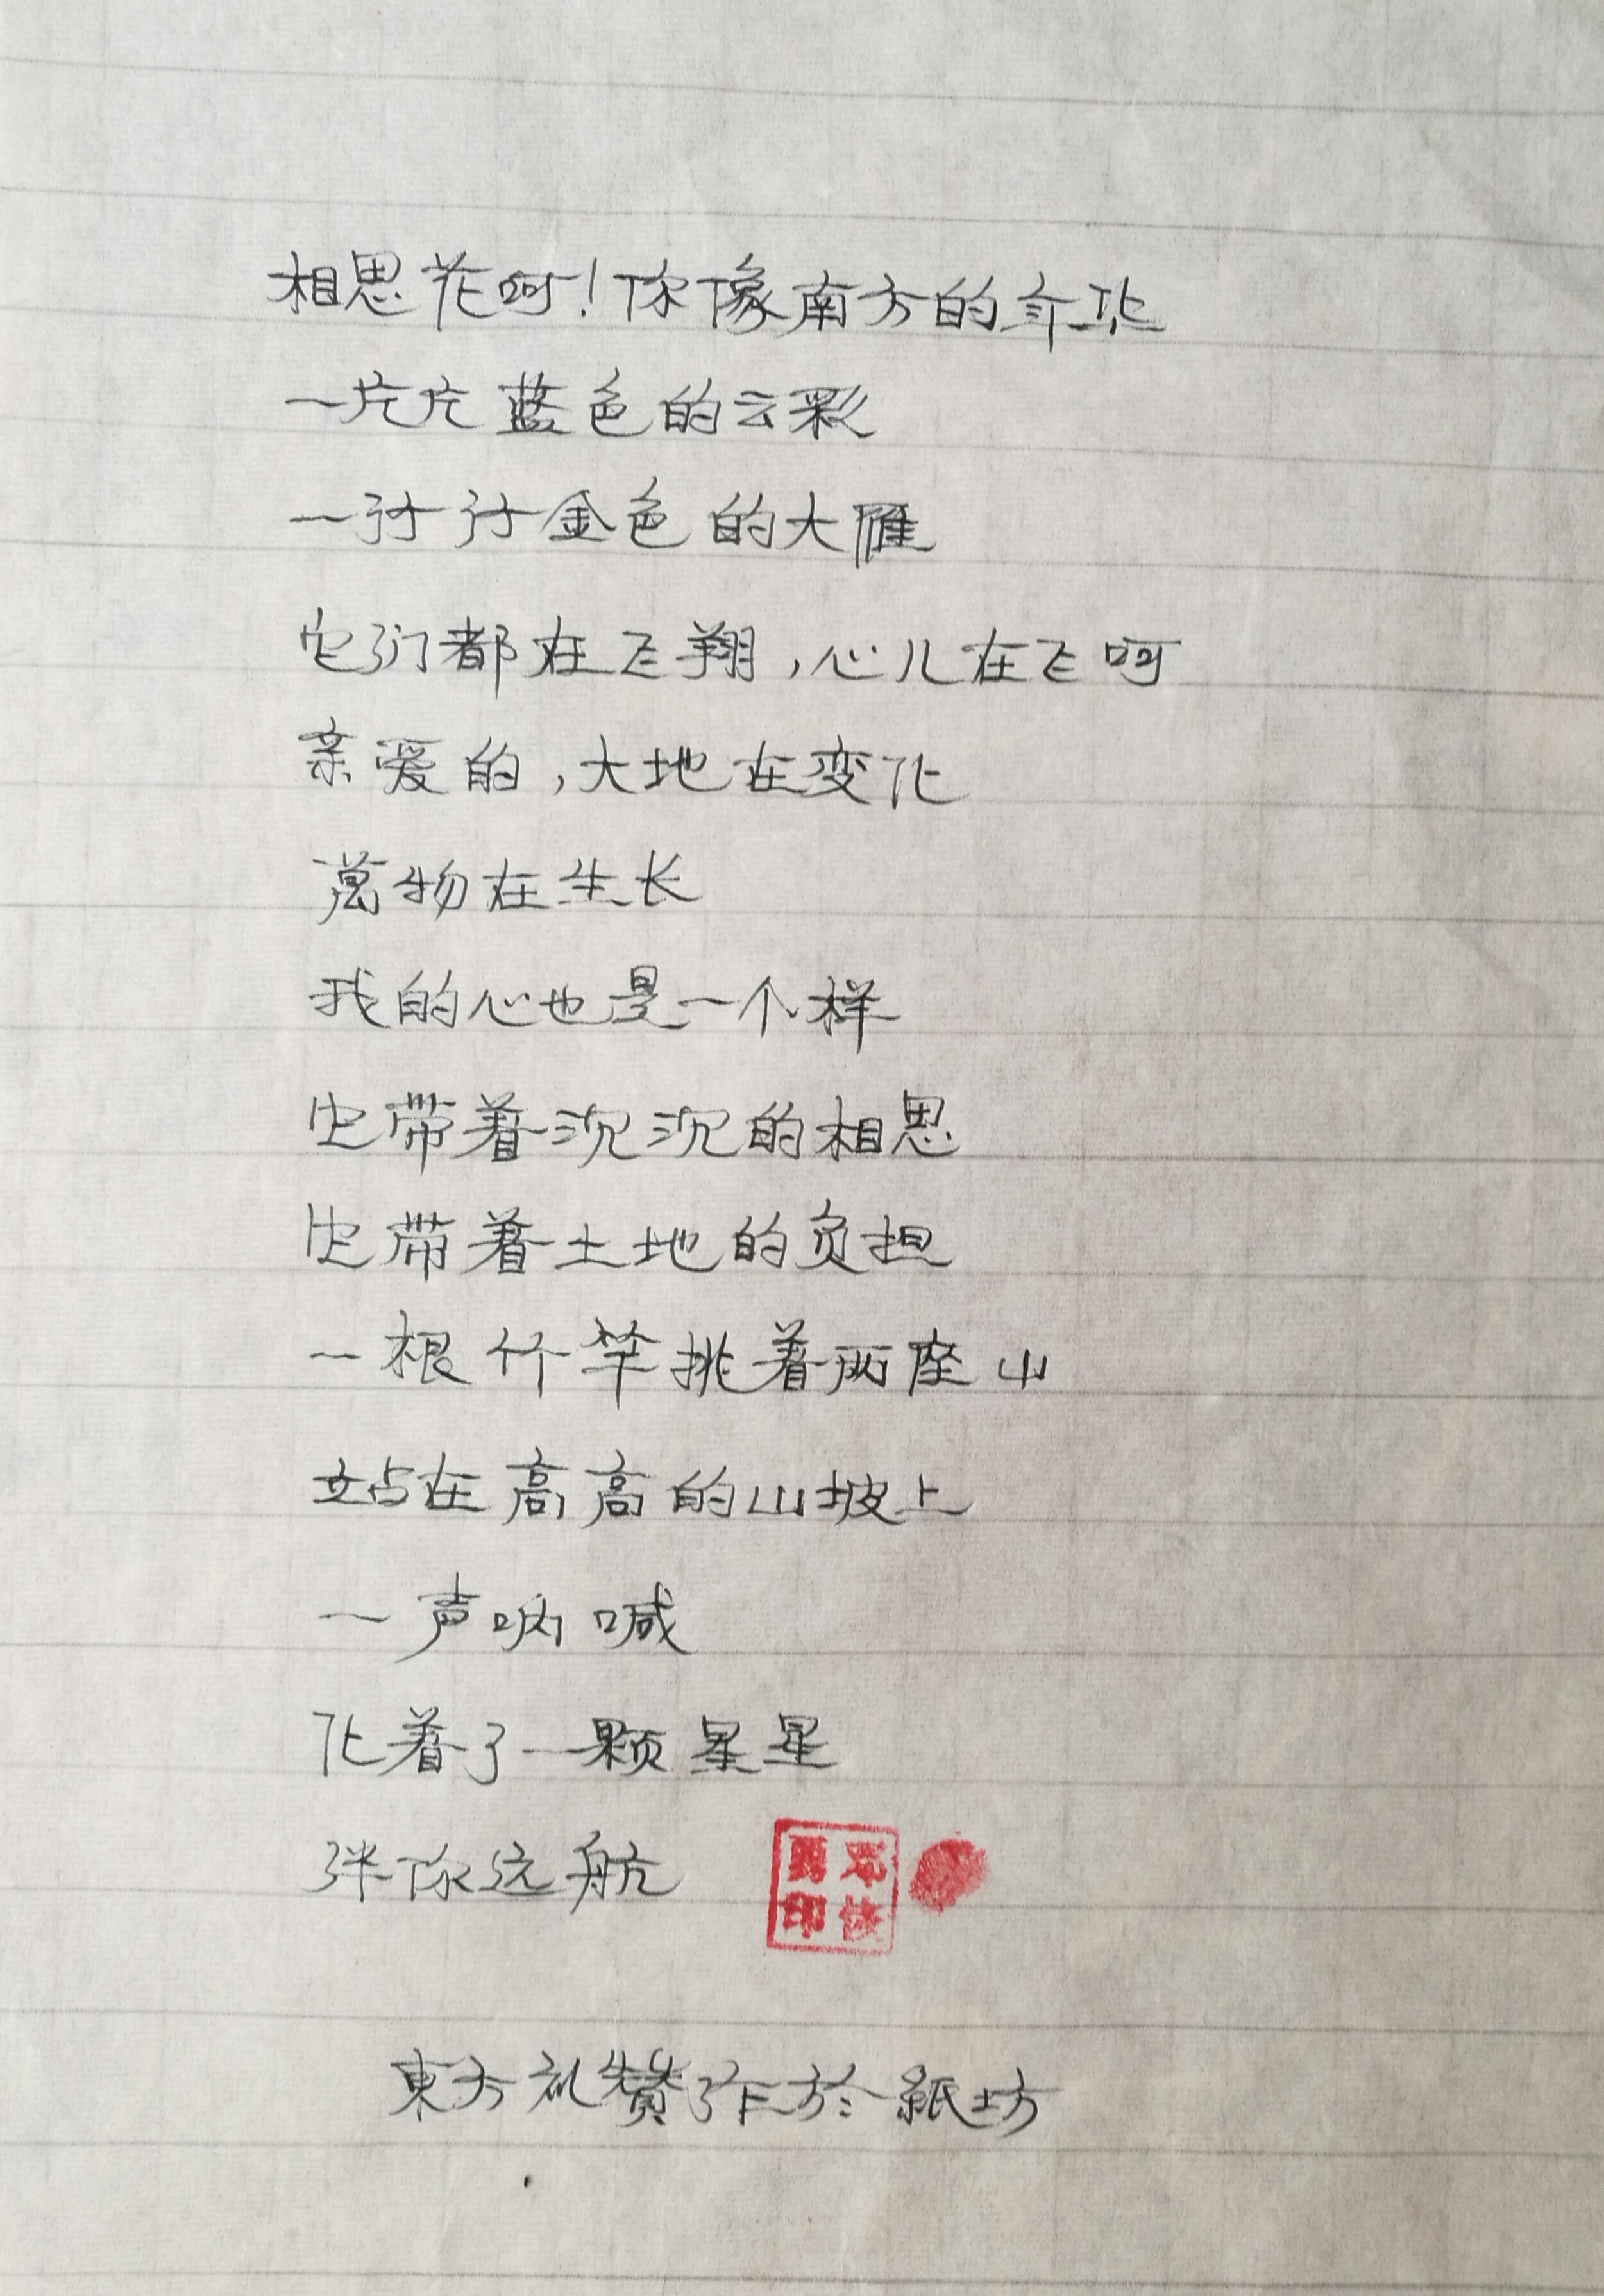 相思花呵!你像南方的年华
一片片蓝色的云彩
一行行金色的大雁
它们都在飞翔,心儿在飞呵
亲爱的,大地在变化
萬物在生长
我的心也是一个样
它带着沉沉的相思
它带着土地的负担
一根竹竿挑着两座山
站在高高的山坡上
一声呐喊
化着了一颗星星
伴你远航
東方礼赞作於紙坊